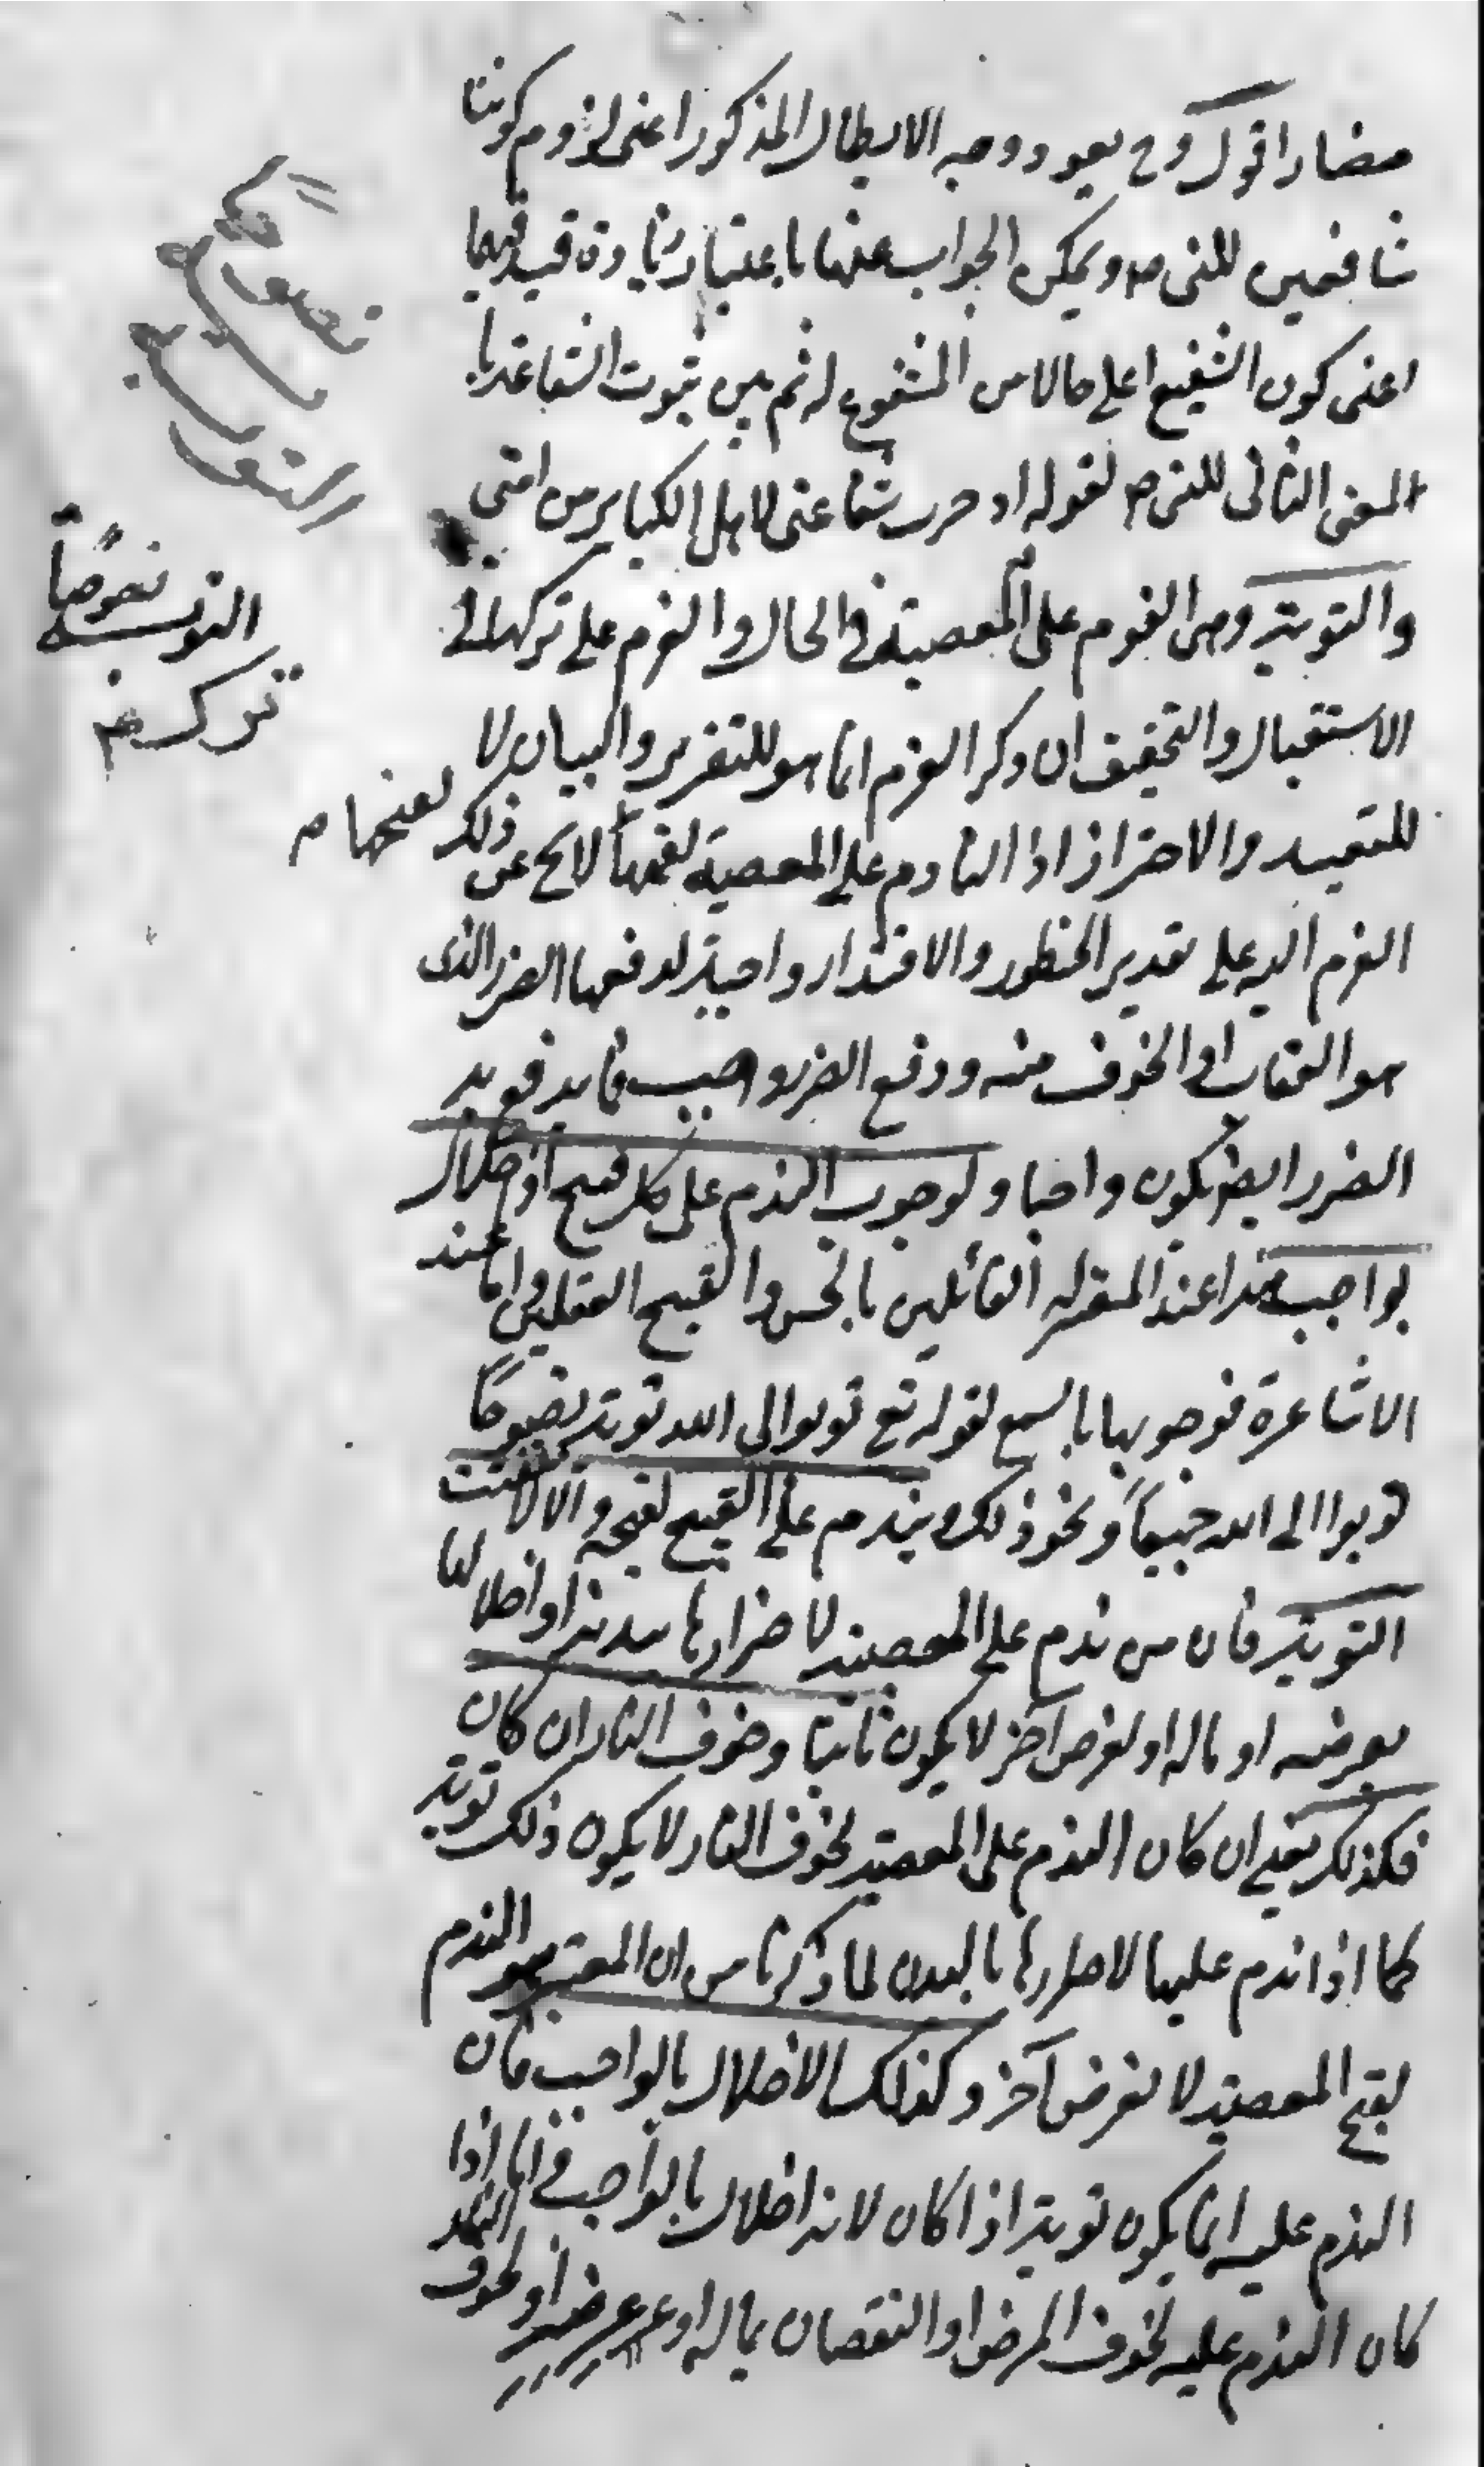 مضار اقول وح يعود وجه الابطال المذكور اعنى لزوم كوننا
شافعين للنبى ص ويمكن الجواب عنها باعتبار زيادة قيد فيهما
اعنى كون الشفيع اعلى حالا من المشفوع له ثم بين ثبوت الشفاعة با
المعنى الثانى للنبى ص لقوله ادخرت شفاعتى لاهل الكباير من امتى
والتوبة وهى الندم على المعصية فى الحال والعزم على تركها فى
الاستقبال والتحقيق ان ذكر العزم انما هو للتقرير والبيان لا
للتقييد والاحتراز اذ النادم على المعصية لقبحها لا يخ عن ذلك
العزم البه على تقدير الخطور والاقتدار واجبة لدفعها الضرر الذى
هو العقاب او الخوف منه ودفع الضرر واجب فما يدفع به
الضرر ايضا يكون واجبا ولوجوب الندم على كل قبيح او اخلال
بواجب هذا عند المعتزله القائلين بالحسن والقبح العقليين واما عند
الاشاعرة فوجوبها بالسمع لقوله تع توبوا الى الله توبة نصوحا
توبوا الى الله جميعاً ونحو ذلك ويندم على القبيح لقبحه والا لانتفت
التوبة فان من ندم على المعصية لاضرارها ببدنه او اخلالها
بعرضه او ماله او لغرض آخر لا يكون تائبا وخوف النار ان كان
فكذلك يعنى ان كان الندم على المعصية لخوف النار لا يكون ذلك توبة
كما اذا ندم عليها لاضرارها بالبدن لما ذكرنا من ان المعتبر هو الندم
لقبح المعصية لا لغرض آخر وكذلك الاخلال بالواجب فان
الندم عليه انما يكون توبة اذا كان لانه اخلال بالواجب فاما اذا
كان الندم عليه لخوف المرض او النقصان بماله او عرضه او لخوف
النار
التوبه نصوحاً